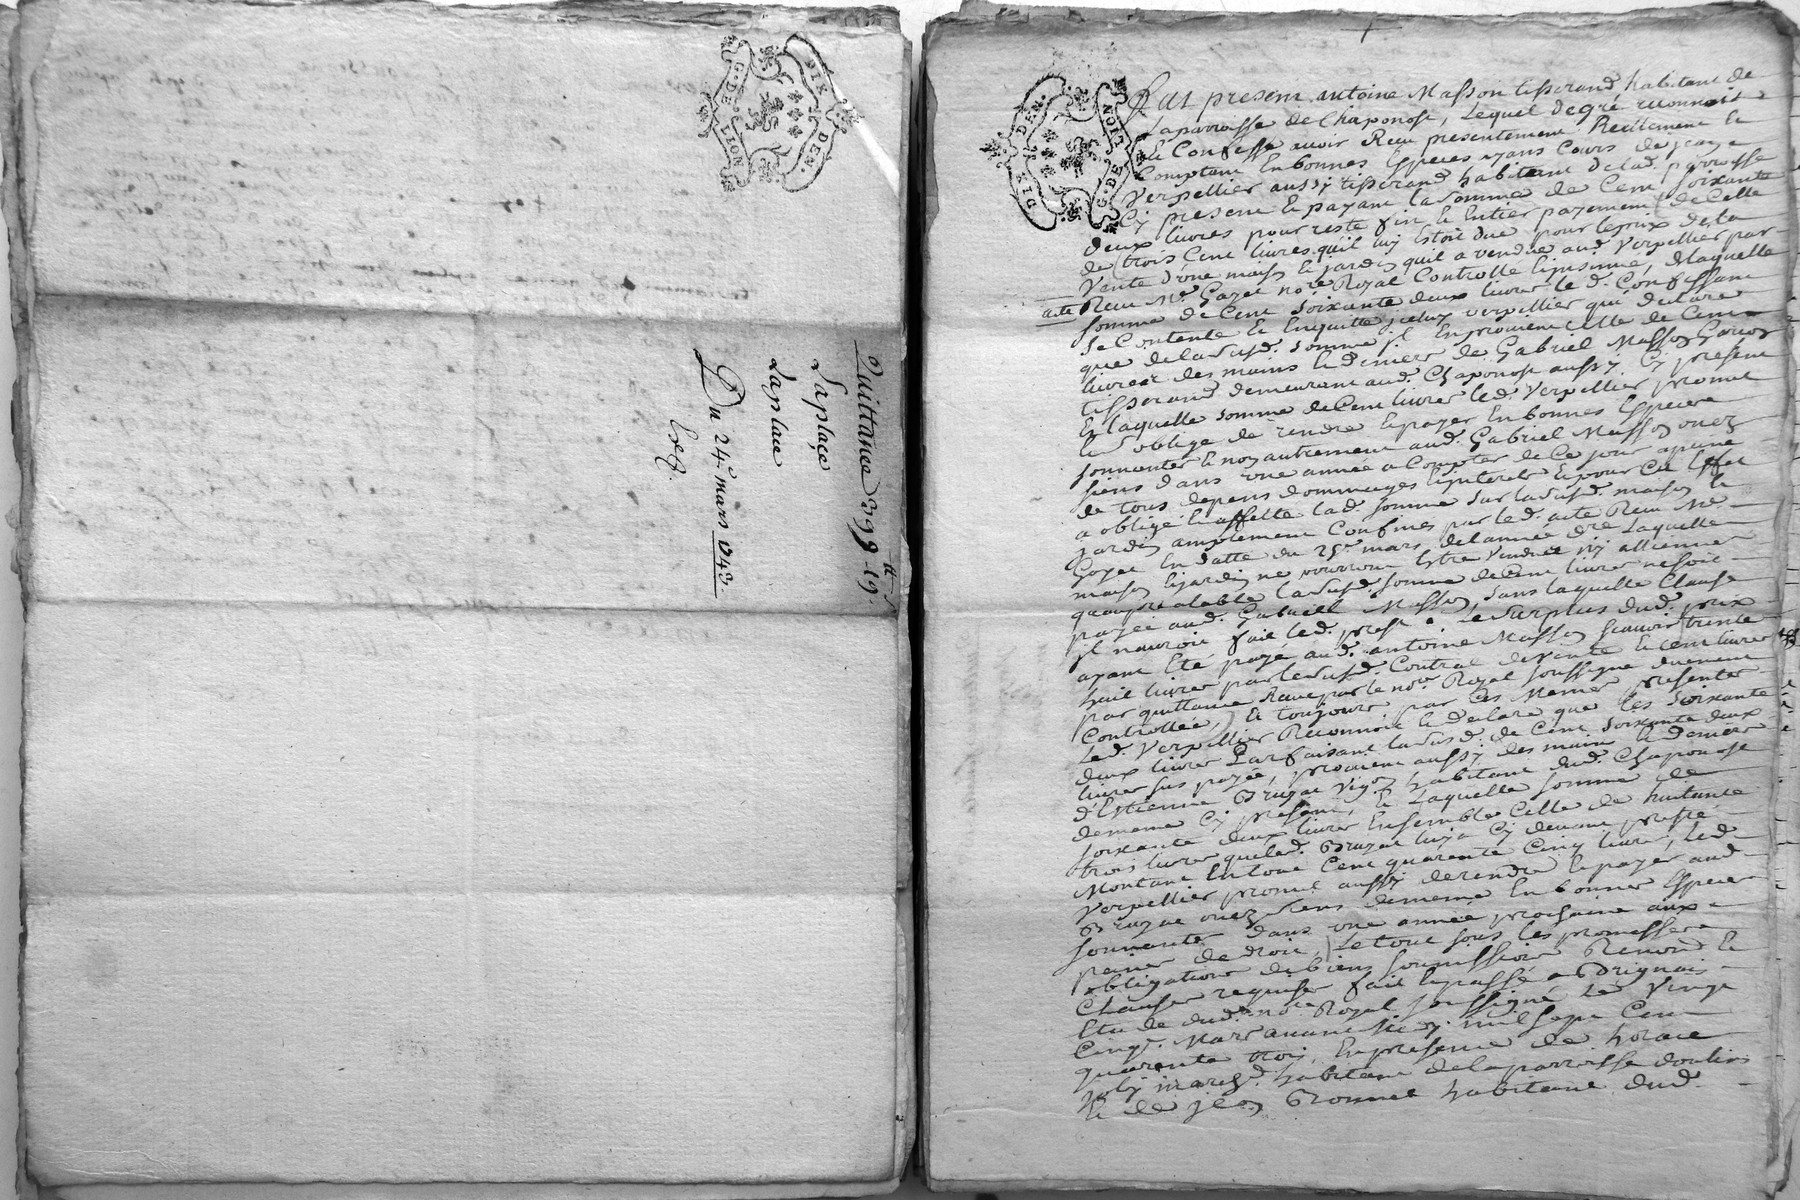 G. DE LION
SIX DEN.
Quittance 399 ^tt 19 ^s
Laplace
Laplace
Du 24.^e mars 1743.
Exp.
SIX DEN.
G. DE LION
Fut present antoine Masson tisserand habitant de
Laparroisse de Chaponost, Lequel degré reconnoit
Et Confesse avoir Reçu presentement Reellement Et
Comptant En bonnes Especes ayans Cours de jean
Verpellier aussy tisserand habitant delad. parroisse
Cy present Et payant La somme de Cent soixante
deux livres pour reste fin Et Entier payement de Celle
de trois Cent livres quil luy Estoit due pour leprix dela
Vente d'une maison Et jardin quil a vendue aud. Verpellier par
acte Reçu M^e Goyet no^re Royal Controllé Et insinué, delaquelle
somme de Cent soixante deux livres le d. Confessant
se Contente Et Enquitte jceluy verpellier qui declare
que deladusd. somme jl En provient Celle de Cent
livres des mains Et deniers de Gabriel Masson Garçon
tisserand demeurant aud. Chaponost aussy Cy present
Et laquelle somme de Cent livres led. Verpellier promet
Et oblige de rendre Et payer En bonnes Especes
sonnantes Et non autrement aud. Gabriel Masson ou ez
siens dans une année a Compter de Ce jour apeine
de tous depens dommages Et interets Et pour Cet Effet
a obligé Et affecté lad. somme sur lasusd. maison Et
jardin amplement Confinés par led. acte Reçu M^e
Goyet En datte du 25^e mars delannée d^re Laquelle
maison Et jardin ne pourront Estre vendue ny alliennee
quauprealable Lasusd. somme de Cent livres ne soit
payée aud. Gabriel Masson, sans laquelle Clause
jl nauroit fait led. prest. Le surplus dud. prix
ayant Eté payé aud. antoine Masson scavoir trente
huit livres par lesusd. Contrat devente Et Cent livres
par quittance Reçue par le no^re Royal soussigné duement
Controllée, Et toujours par Ces Memes presentes
Led. Verpellier Reconnoit Et declare que les soixante
deux livres Parfaisant lasusd. de Cent soixante deux
livres sus payée, provient aussy des mains Et deniers
d'Estienne Bruyat Vig^on habitant dud. Chaponost
demême Cy present, Et Laquelle somme de
soixante deux livres Ensemble Celle de huitante
trois livres queled. Bruyat luy a Cy devant presté
Montant En tout Cent quarente Cinq livres, led.
Verpellier promet aussy derendre Et payer aud.
Bruyat ou ez siens demême En bonnes Especes
sonnantes dans une année prochaine aux
peines de droit, Le tout sous les promesses
obligations debiens soumissions Renon^d Et
Clauses requises fait Et passé a Brignais
Etude dud. no^re Royal soussigné Le Vingt
Cinq^e. Mars avant midy mil sept Cent
quarente trois, En presence de horace
joly march^d. habitant de la parroisse doulins
Et de jean Bonnet habitant dud.